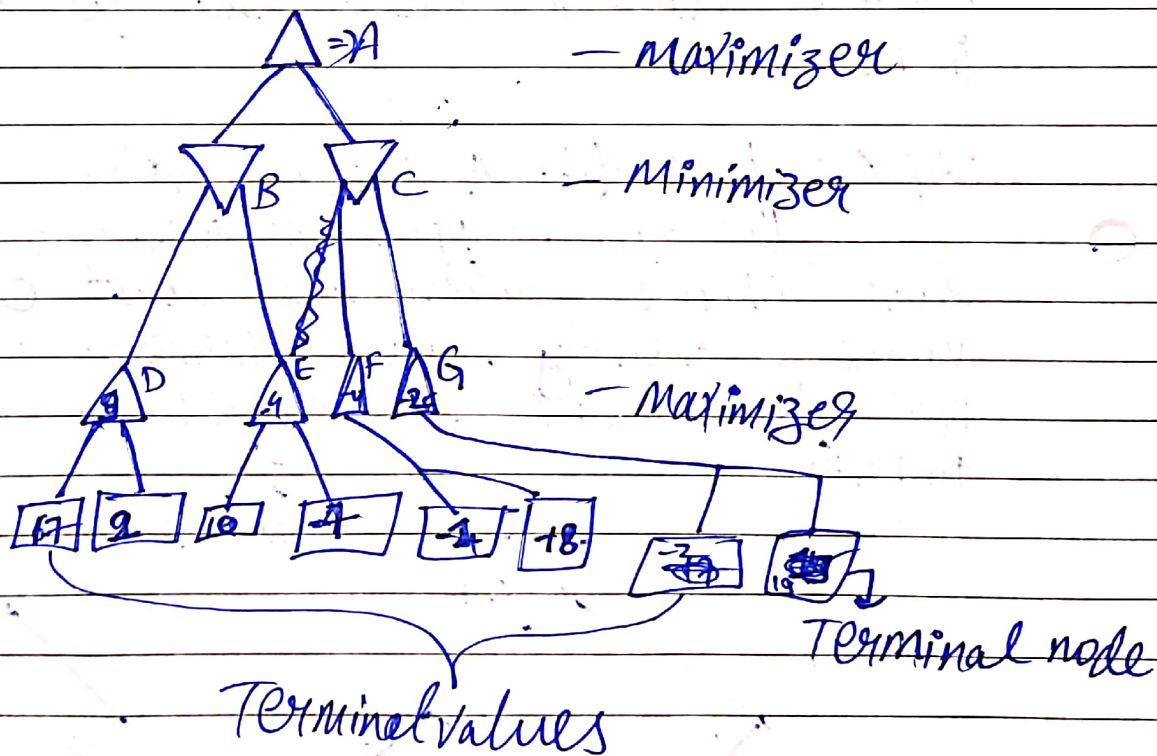 =>A - Maximizer
B C - Minimizer
D E F G - Maximizer
9 -4
67 9 10 -4 +8
-2 19
Terminal node
Terminal values